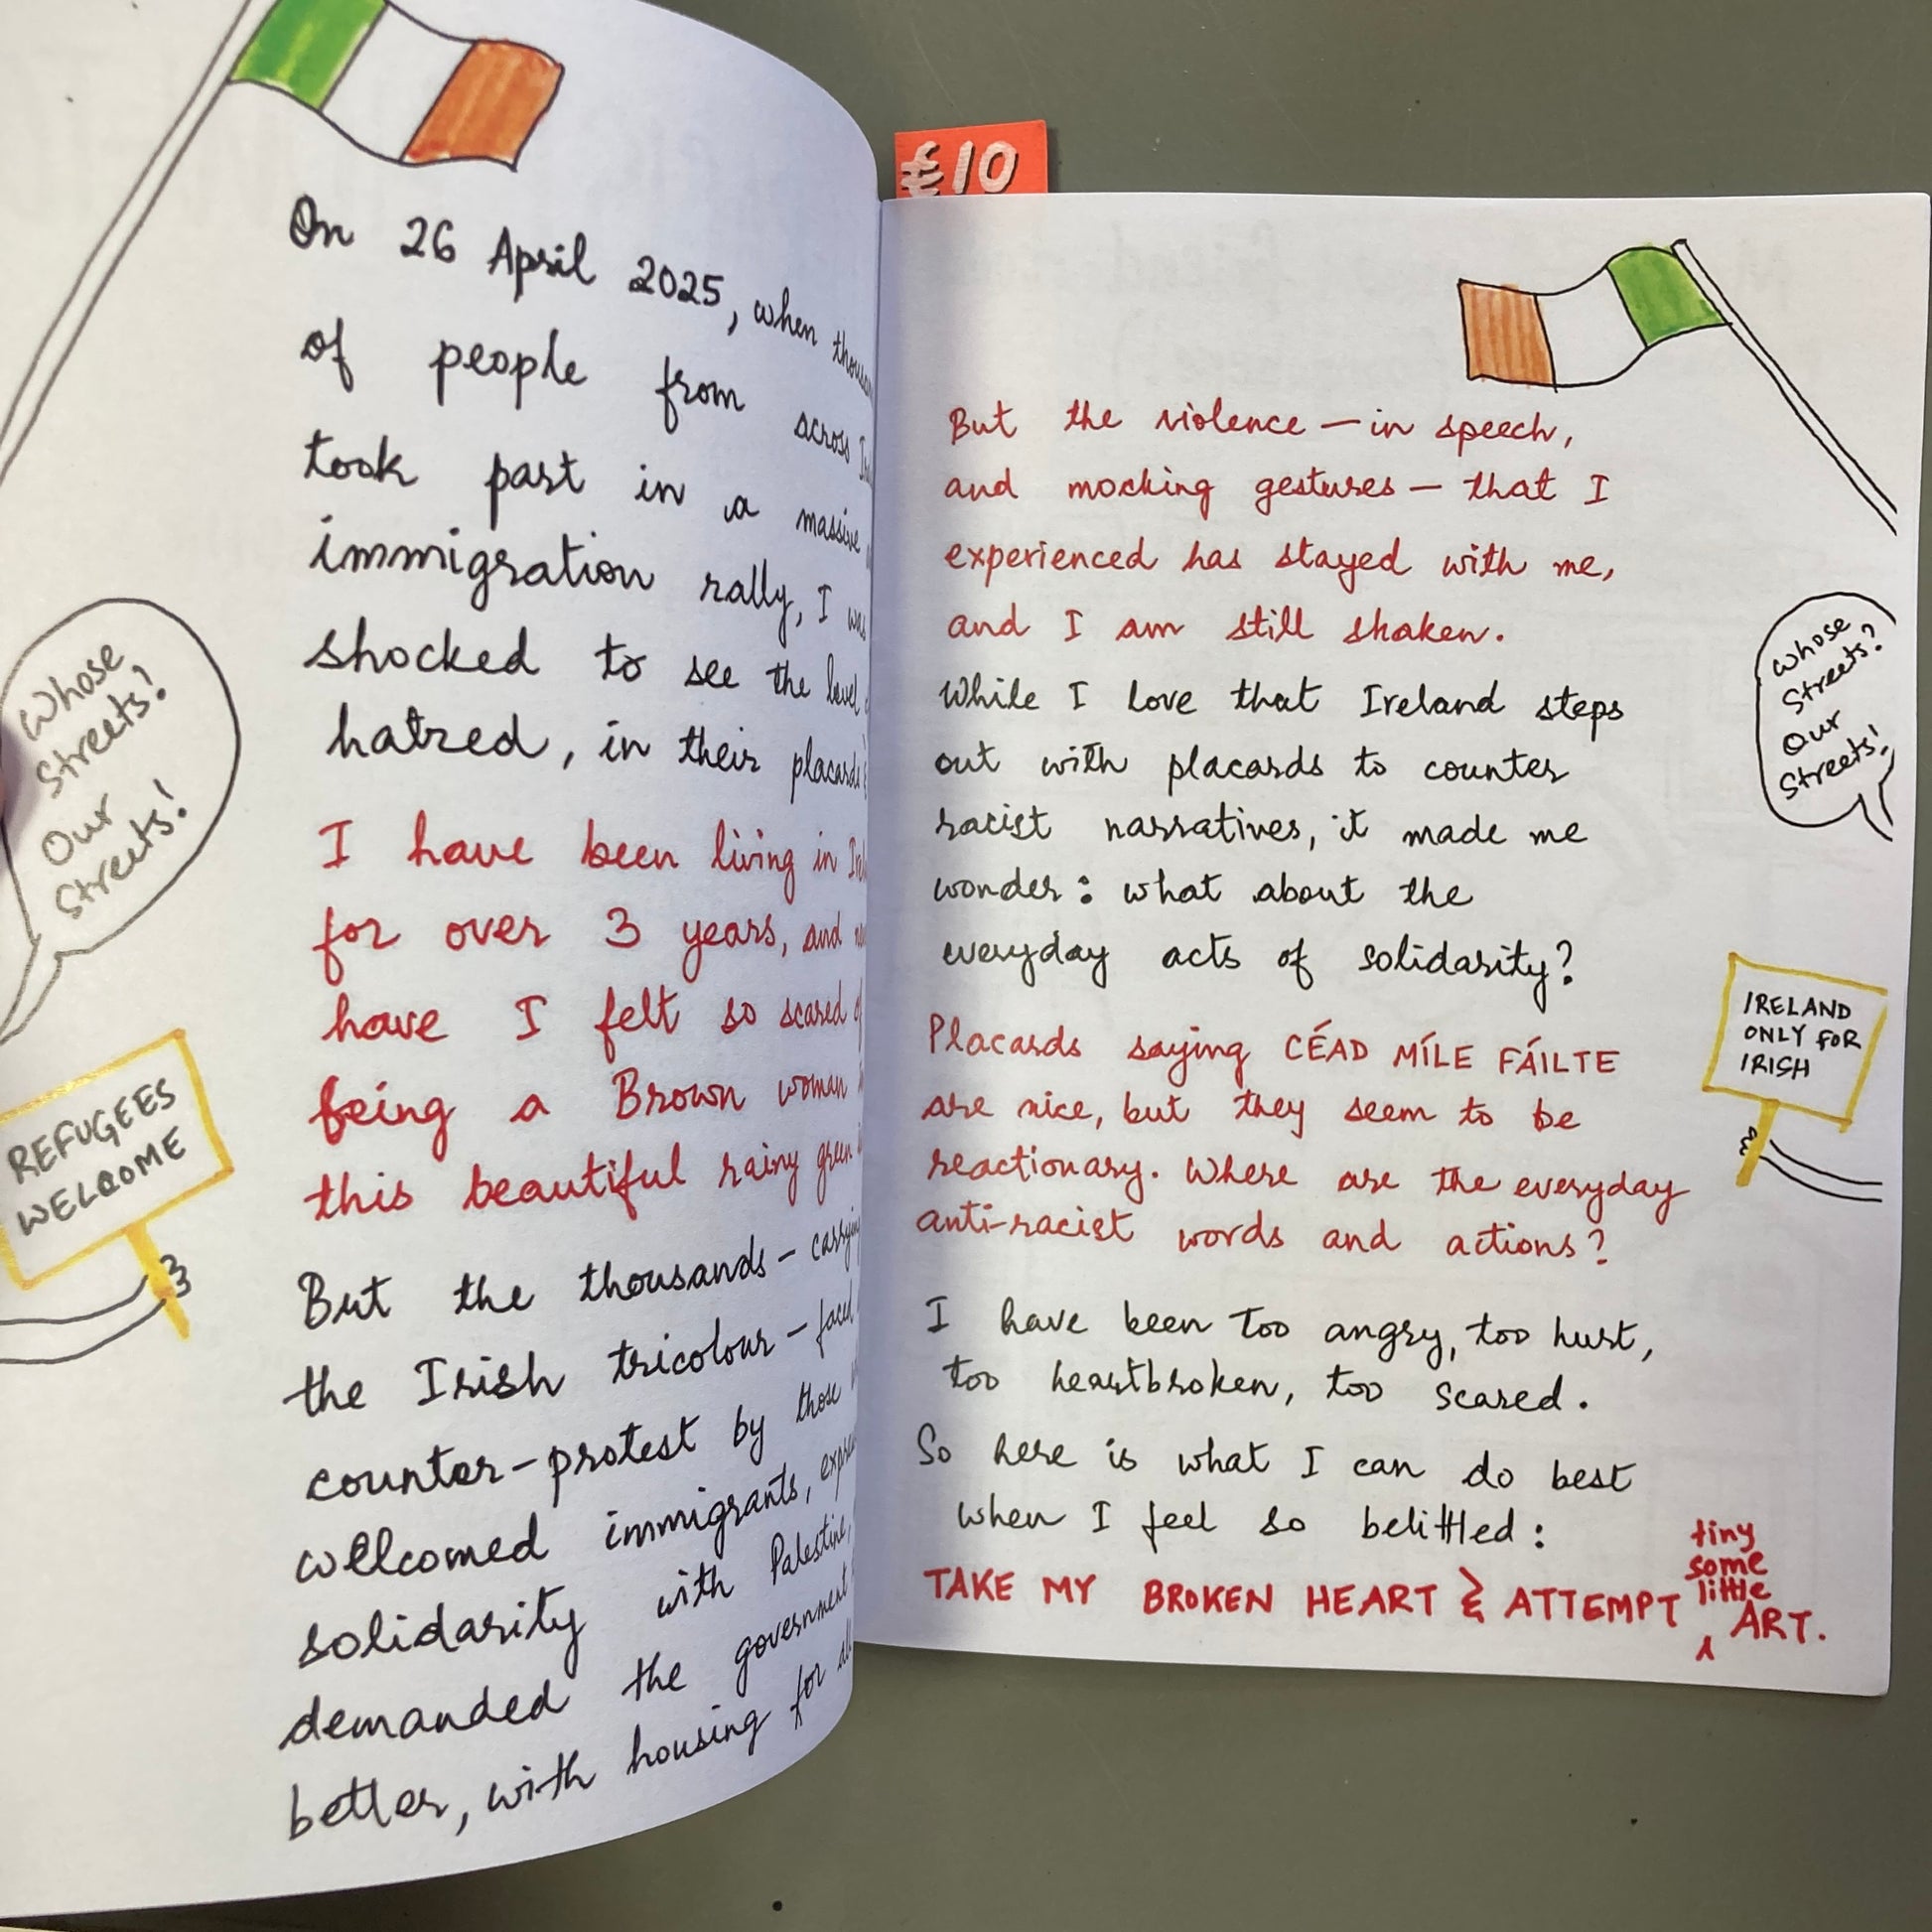 On 26 April 2025, when
of people from across
took part in a massive
immigration rally, I was
shocked to see the level
hatred, in their placards
I have been living in
for over 3 years, and
have I felt so scared
being a Brown woman
this beautiful rainy green
But the thousands – carrying
the Irish tricolour – faced
counter-protest by those
welcomed immigrants,
solidarity with Palestine,
demanded the government
better, with housing for all
Whose
Streets?
Our
Streets!
REFUGEES
WELCOME
€10
But the violence – in speech,
and mocking gestures – that I
experienced has stayed with me,
and I am still shaken.
While I love that Ireland steps
out with placards to counter
racist narratives, it made me
wonder: what about the
everyday acts of solidarity?
Placards saying CÉAD MÍLE FÁILTE
are nice, but they seem to be
reactionary. Where are the everyday
anti-racist words and actions?
I have been too angry, too hurt,
too heartbroken, too scared.
So here is what I can do best
when I feel so belittled:
TAKE MY BROKEN HEART & ATTEMPT
tiny
some
little
ART.
Whose
Streets?
Our
Streets!
IRELAND
ONLY FOR
IRISH